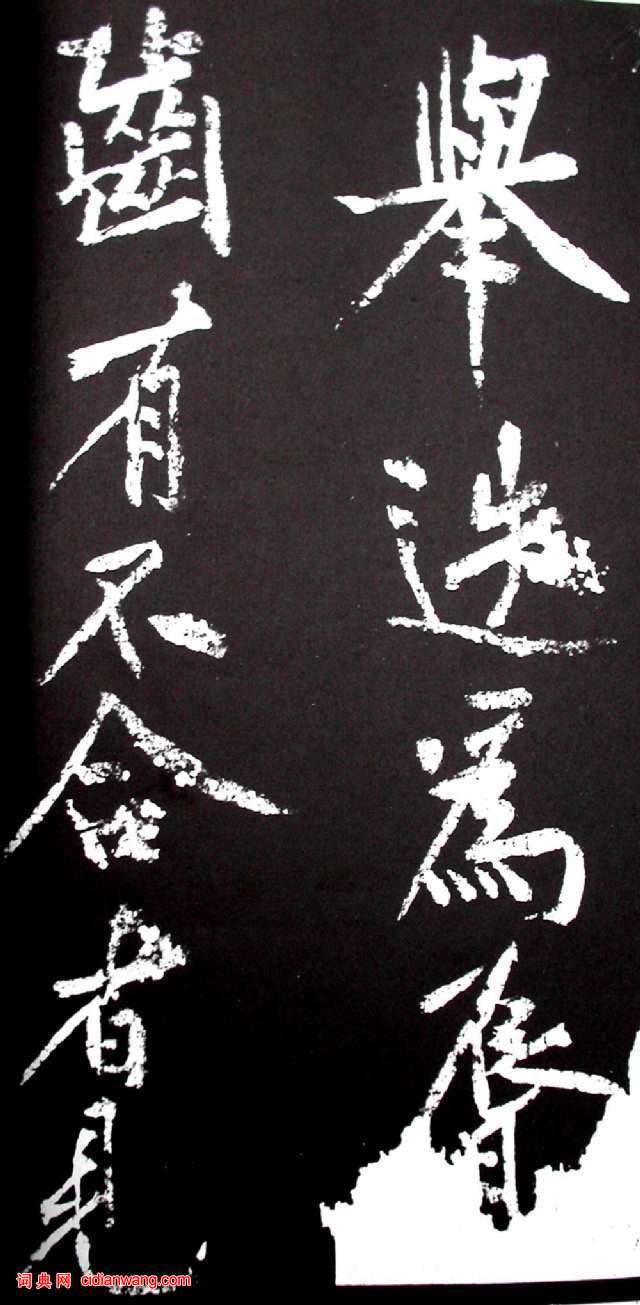 舉選為脣
齒有不合者見
词典网 cidianwang.com